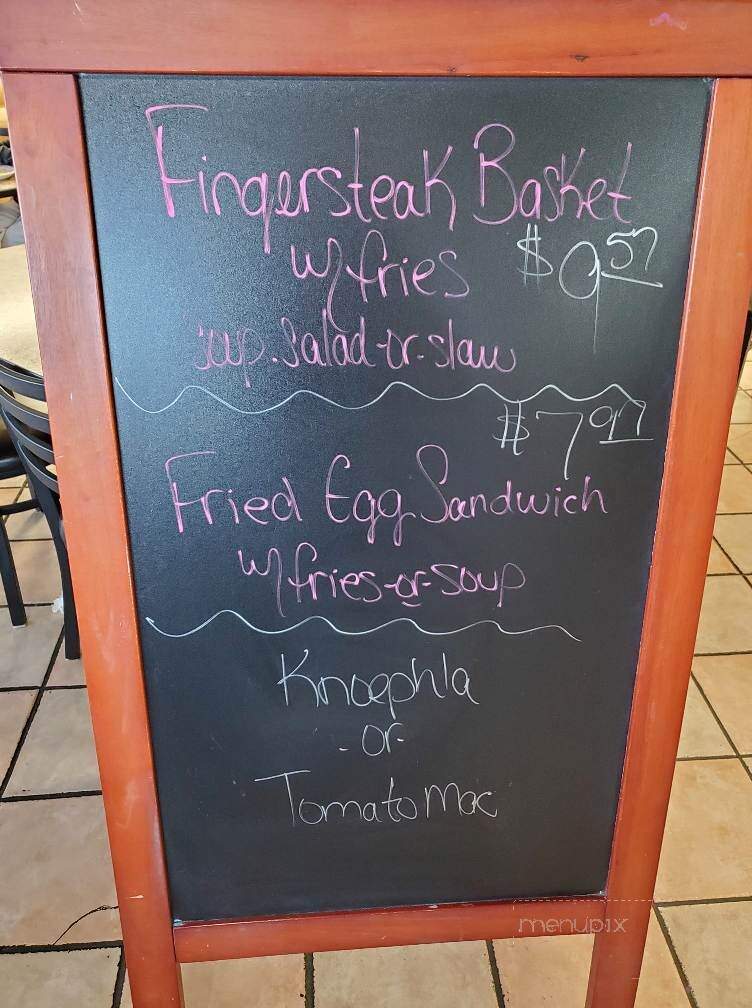 Fingersteak Basket
w/ fries $9.57
soup. salad-or-slaw
$7.97
Fried Egg Sandwich
w/ fries-or-soup
Knoephla
-or-
Tomato Mac
menupix